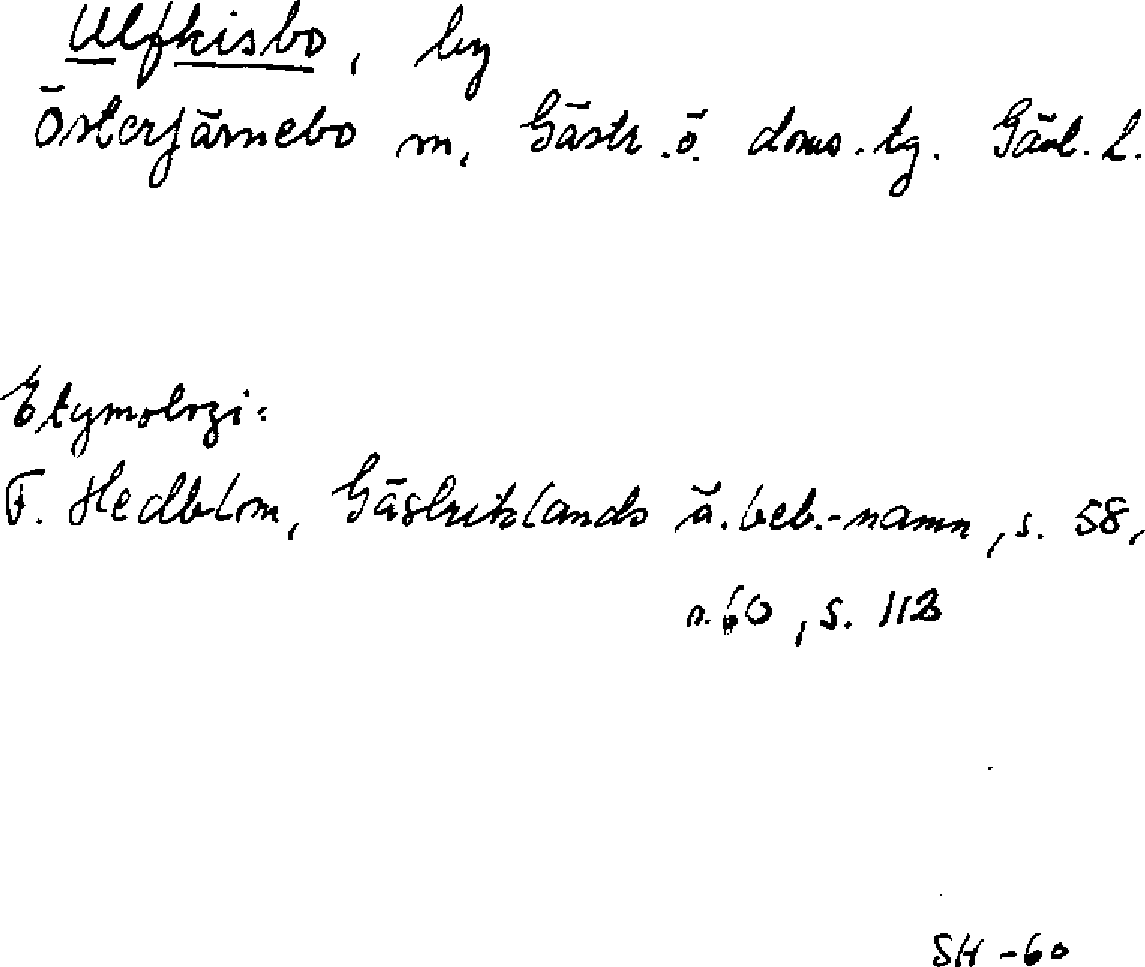 Ulfkisbo, by
Österfärnebo sn, Gästr. ö. doms.-tg. Gävl. L.
Etymologi:
F. Hedblom, Gästriklands ä. beb.-namn, s. 58,
s. 60, s. 113
SH -60